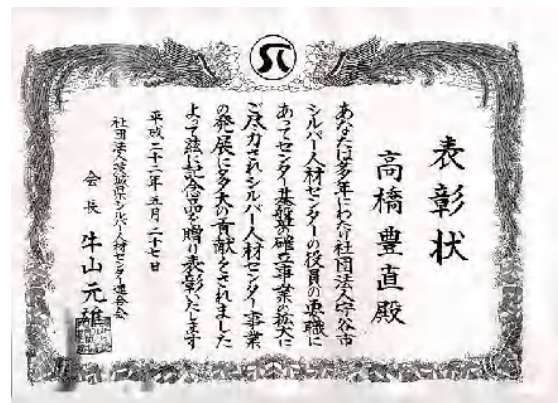 表彰状
高橋豊直殿
あなたは多年にわたり社団法人守谷市
シルバー人材センターの役員の要職に
あってセンター基盤の確立事業の拡大に
ご尽力されシルバー人材センター事業
の発展に多大の貢献をされました
よって茲に記念品を贈り表彰いたします
平成二十二年五月二十七日
社団法人茨城県シルバー人材センター連合会
会長 牛山元雄